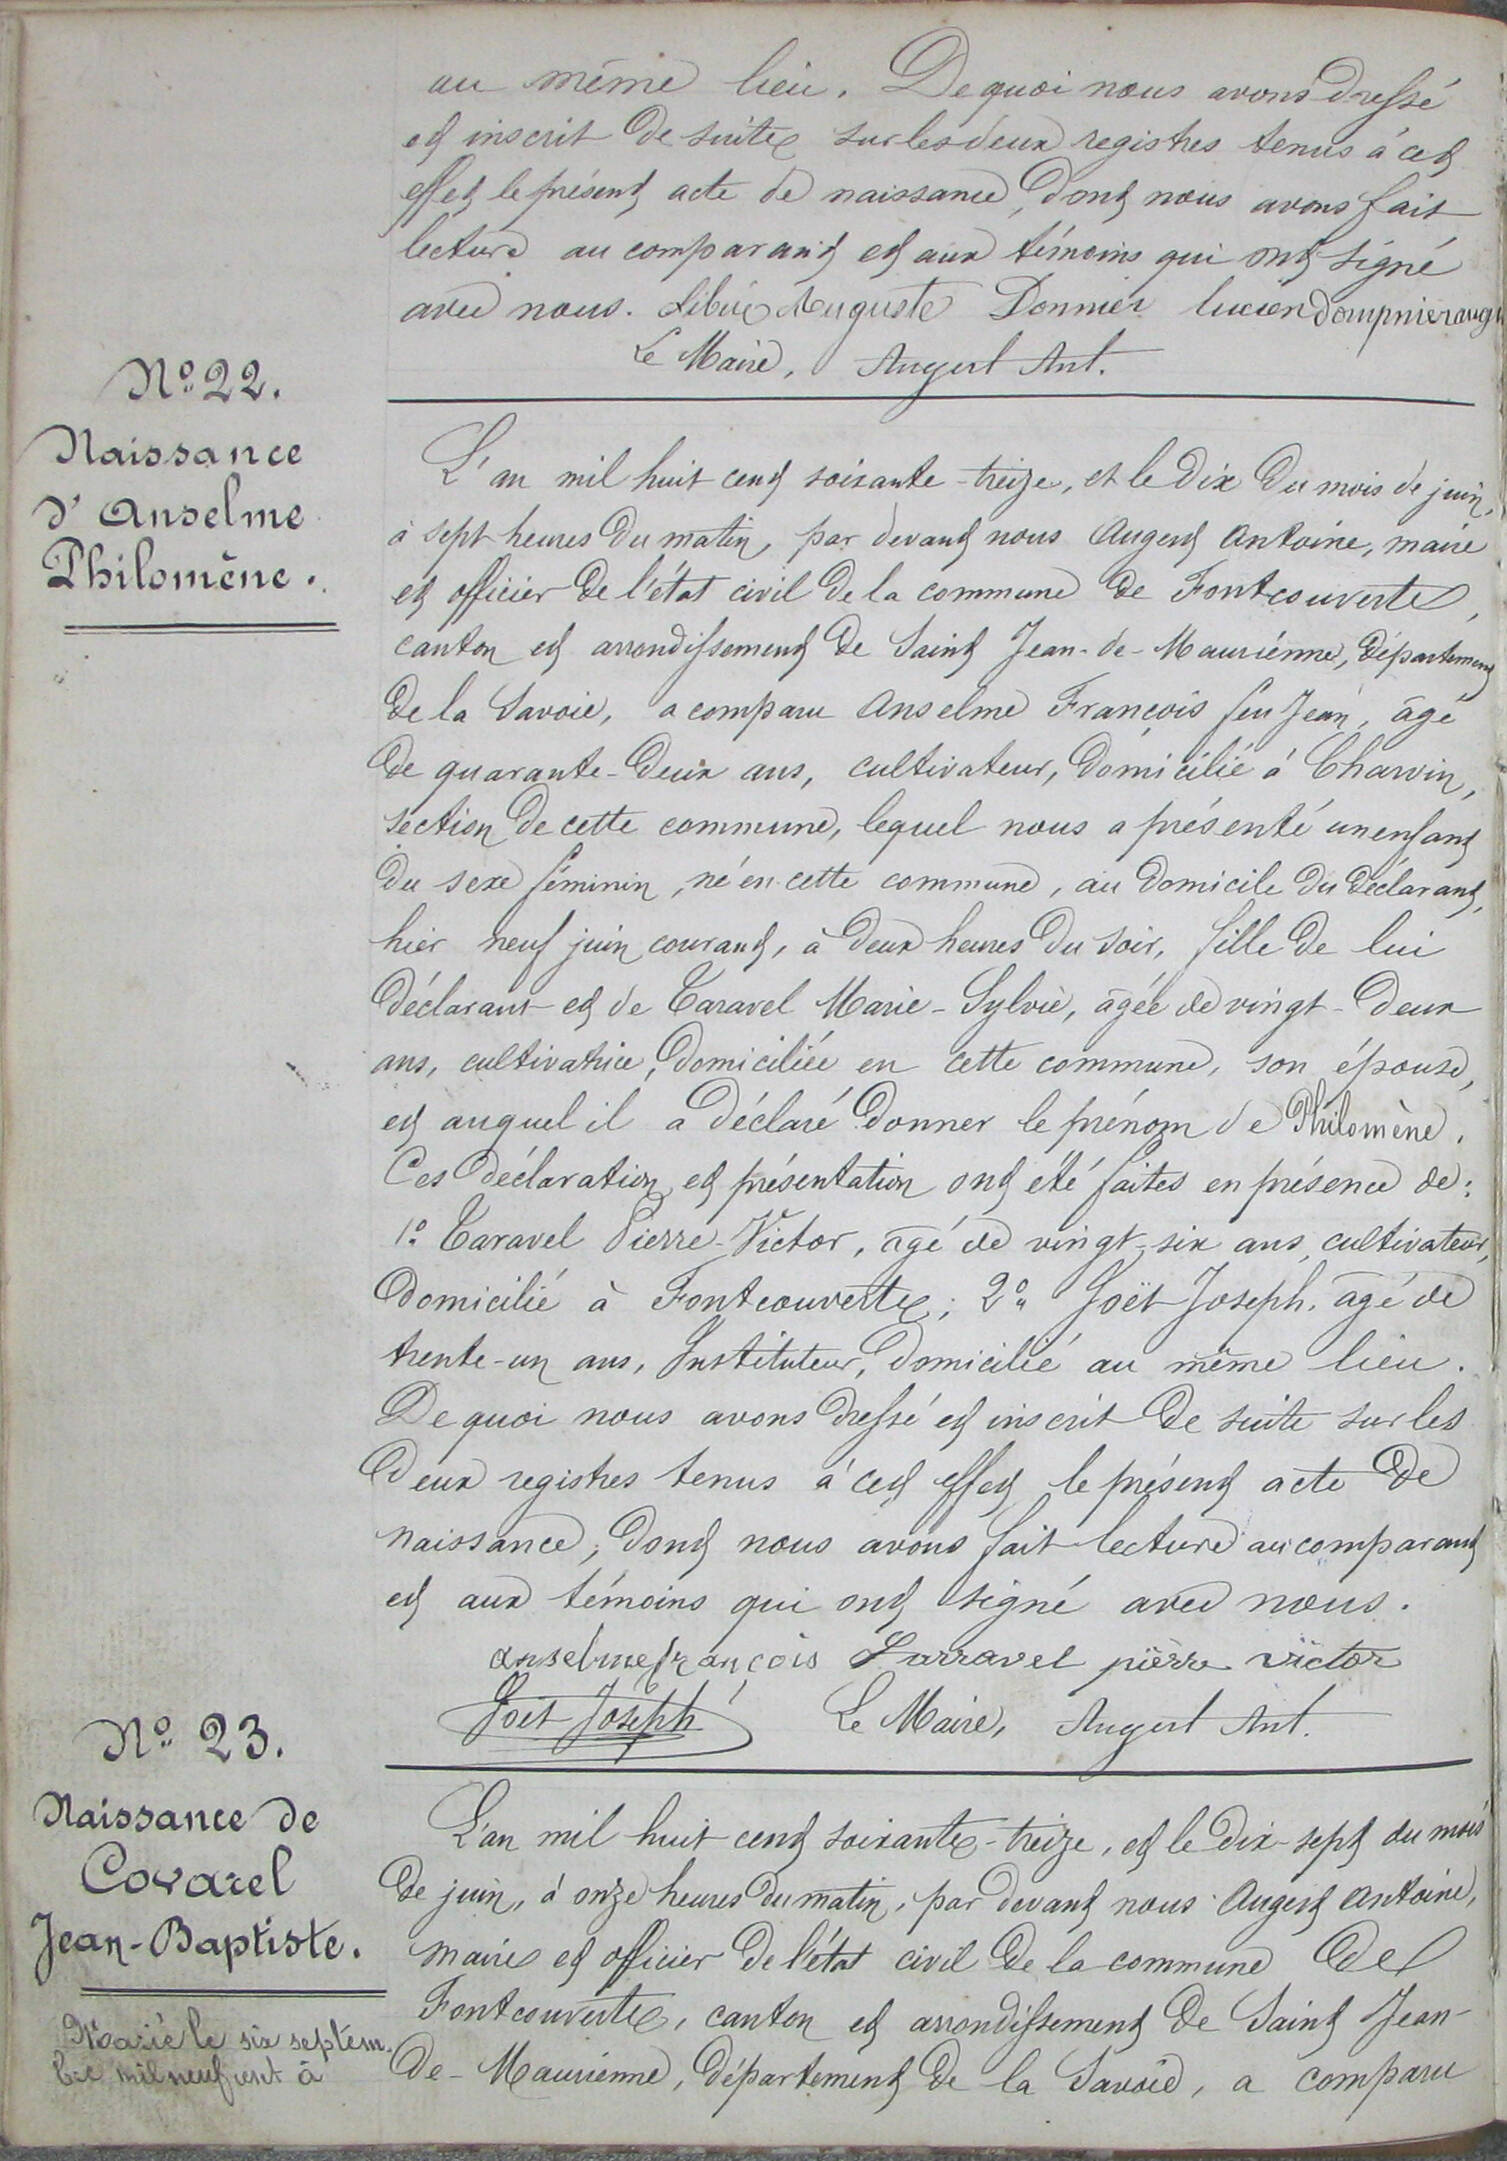 au même lieu. De quoi nous avons dressé
et inscrit de suite sur les deux registres tenus à cet
effet le présent acte de naissance, dont nous avons fait
lecture au comparant et aux témoins qui ont signé
avec nous. Auguste Donnier lucien doupnier aug
Le Maire, Augert Ant.
N° 22.
Naissance
d'Anselme
Philomène.
L'an mil huit cent soixante-treize, et le dix du mois de juin,
à sept heures du matin, par devant nous Augert Antoine, maire
et officier de l'état civil de la commune de Fontcouverte,
canton et arrondissement de Saint Jean-de-Maurienne, département
de la Savoie, a comparu Anselme François feu Jean, âgé
de quarante-deux ans, cultivateur, domicilié à Charvin,
section de cette commune, lequel nous a présenté un enfant
du sexe féminin, né en cette commune, au domicile du déclarant,
hier neuf juin courant, à deux heures du soir, fille de lui
déclarant et de Taravel Marie-Sylvie, âgée de vingt-deux
ans, cultivatrice, domiciliée en cette commune, son épouse,
et auquel il a déclaré donner le prénom de Philomène.
Ces déclaration et présentation ont été faites en présence de:
1° Taravel Pierre-Victor, âgé de vingt-six ans, cultivateur,
domicilié à Fontcouverte; 2° Joët Joseph, âgé de
trente-un ans, Instituteur, domicilié au même lieu.
De quoi nous avons dressé et inscrit de suite sur les
deux registres tenus à cet effet le présent acte de
naissance; dont nous avons fait lecture au comparant
et aux témoins qui ont signé avec nous.
anselme françois Tarravel pierre victor
Joët Joseph Le Maire, Augert Ant.
N° 23.
Naissance de
Covarel
Jean-Baptiste.
Marié le six septem
bre mil neuf cent à
L'an mil huit cent soixante-treize, et le dix-sept du mois
de juin, à onze heures du matin, par devant nous Augert Antoine,
maire et officier de l'état civil de la commune de
Fontcouverte, canton et arrondissement de Saint Jean-
de-Maurienne, département de la Savoie, a comparu